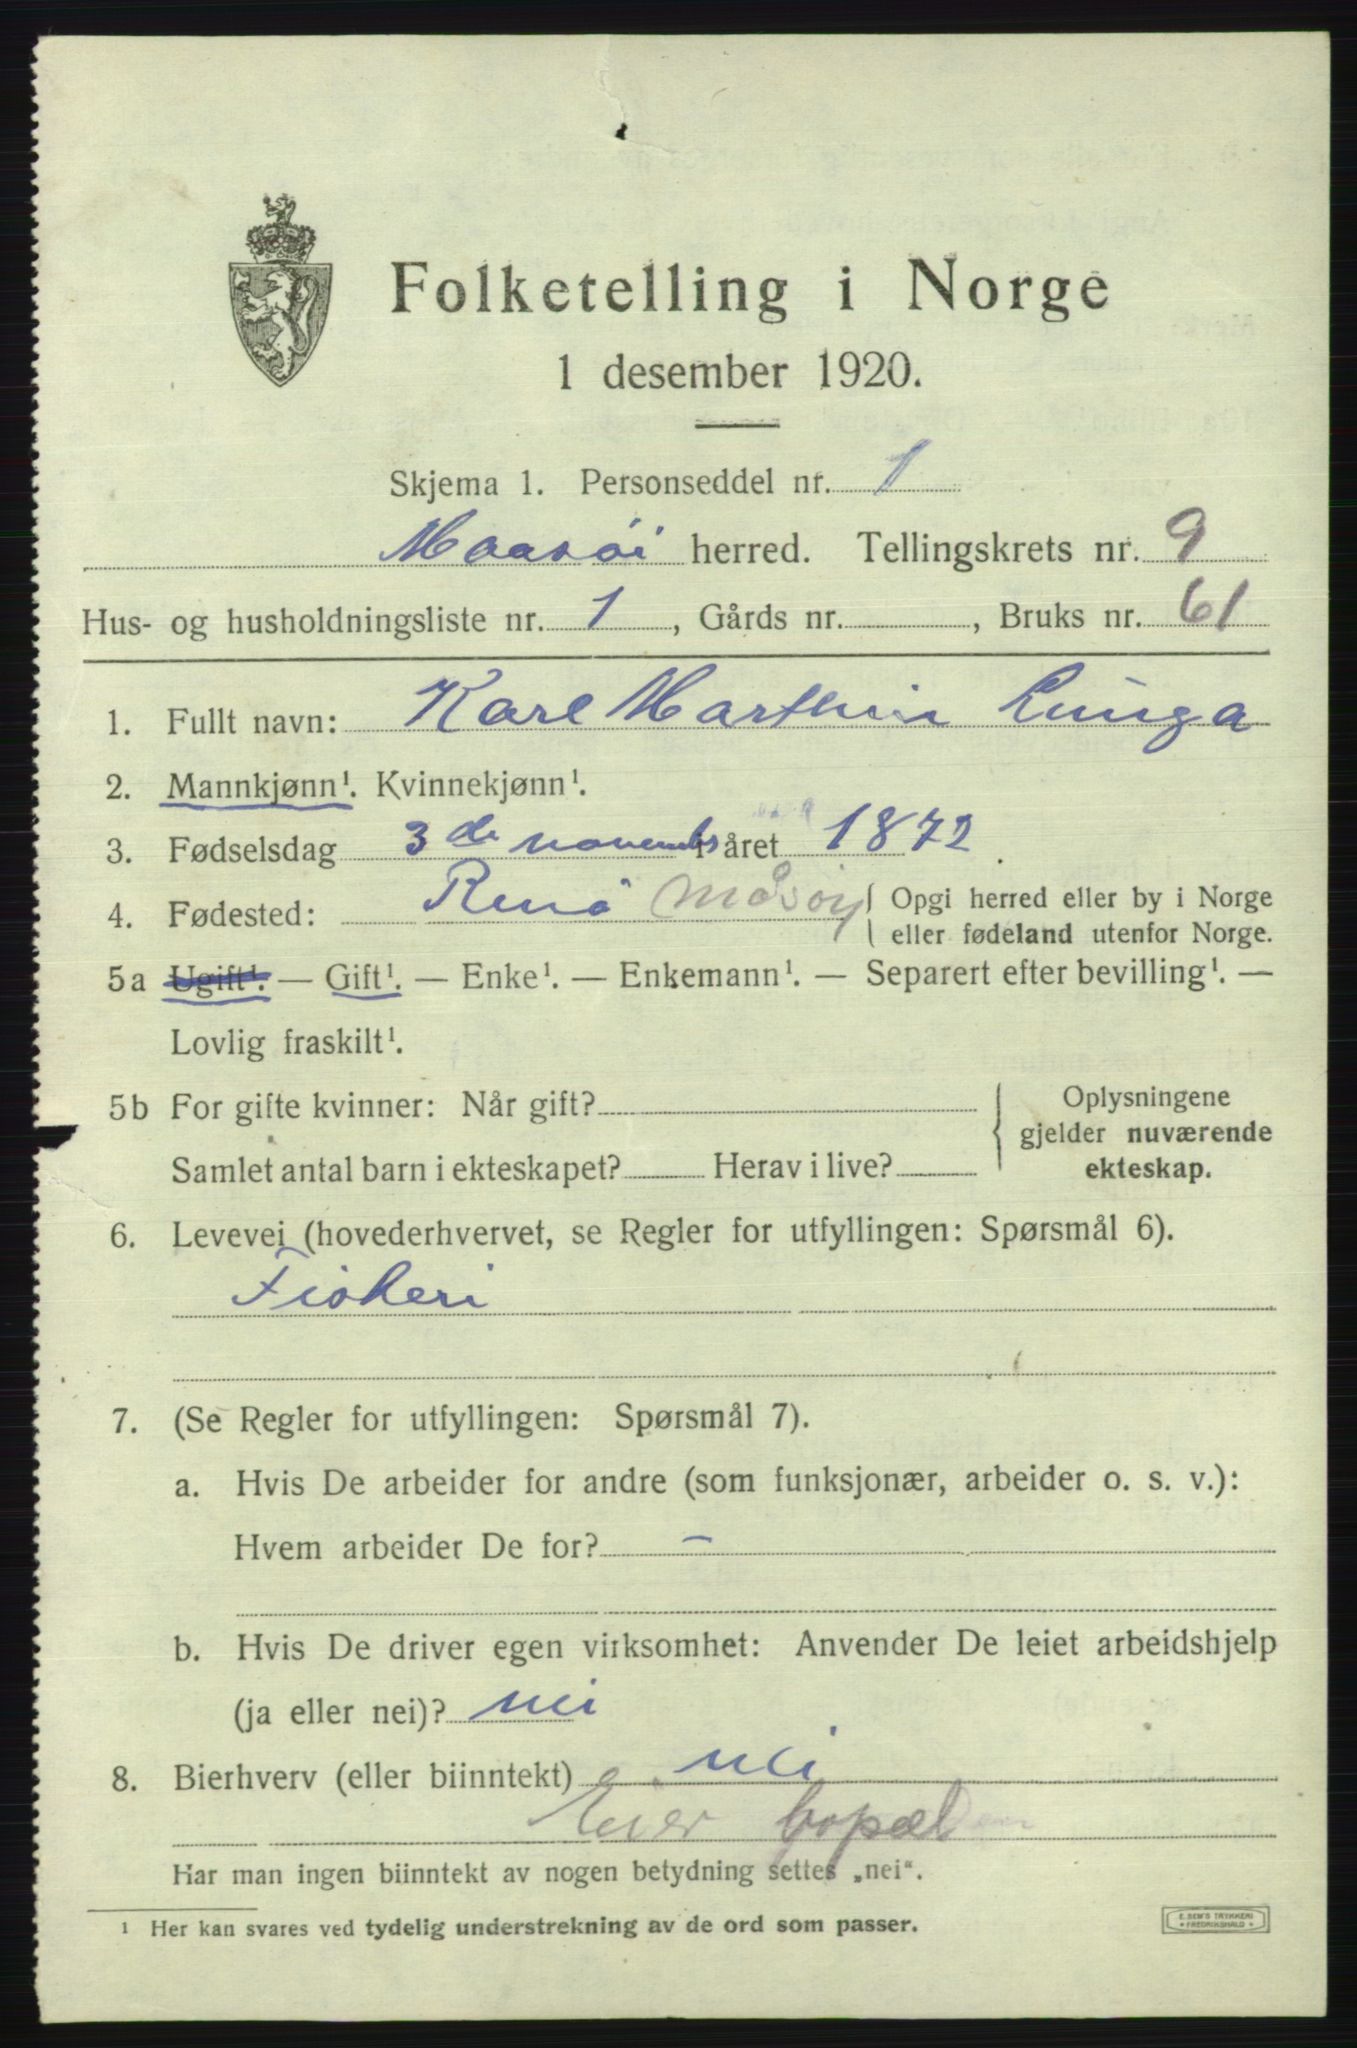 Folketelling i Norge
1 desember 1920.
Skjema 1. Personseddel nr. 1
Maasöi herred. Tellingskrets nr. 9
Hus- og husholdningsliste nr. 1, Gårds nr. , Bruks nr. 61
1. Fullt navn: Karl Marthin
2. Mannkjønn¹. Kvinnekjønn¹.
3. Fødselsdag 3de november i året 1872.
4. Fødested: Måsøy { Opgi herred eller by i Norge
eller fødeland utenfor Norge.
5a Ugift¹. — Gift¹. — Enke¹. — Enkemann¹. — Separert efter bevilling¹. —
Lovlig fraskilt¹.
5b For gifte kvinner: Når gift? { Oplysningene
gjelder nuværende
Samlet antal barn i ekteskapet? Herav i live? ekteskap.
6. Levevei (hovederhvervet, se Regler for utfyllingen: Spørsmål 6).
Fiskeri
7. (Se Regler for utfyllingen: Spørsmål 7).
a. Hvis De arbeider for andre (som funksjonær, arbeider o. s. v.):
Hvem arbeider De for? –
b. Hvis De driver egen virksomhet: Anvender De leiet arbeidshjelp
(ja eller nei)? nei
8. Bierhverv (eller biinntekt) nei
Eier bopæl
Har man ingen biinntekt av nogen betydning settes „nei“.
¹ Her kan svares ved tydelig understrekning av de ord som passer.
E. SEM'S TRYKKERI
FREDRIKSHALD